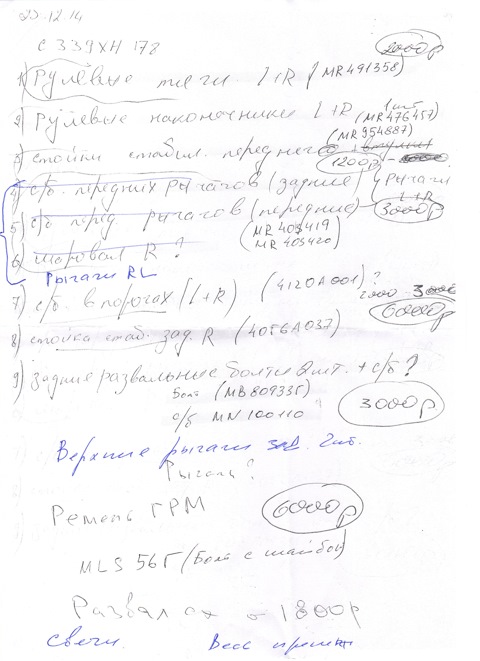 23.12.14
С 339 ХН 178
2000р
1) Рулевые тяги L+R (MR491358)
2) Рулевые наконечники L+R 1шт (MR476457)
(MR954887)
3) стойки стабил. переднего + втулки
1200р
4) с/б. передних рычагов (задние) 4 рычаги
L+R
5) с/б перед. рычагов (передние) 3000р
(MR403419
MR403420)
6) шаровая R ?
Рычаги RL
7) с/б. в порогах (L+R) (4120A001) ?
2000
6000р
8) стойка стаб. зад. R (4056A037)
9) задние развальные болты 2шт. + с/б ?
Болт (MB809335)
с/б MN100110
3000р
Верхние рычаги зад 2шт.
Рычаги ?
Ремень ГРМ 6000р
MLS56Г (Болт с шайбой)
Развал сх - 1800р
свечи. Весь